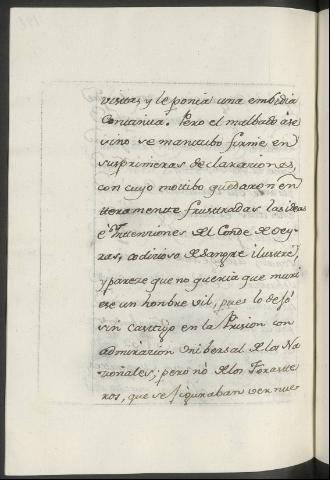 visita, y le ponia una embidia
Continua. Pero el malbado ase
sino se manutubo firme en
sus primeras declaraziones,
con cuyo mottibo quedaron en
tteramentte frusttradas las ideas
é Inttenziones del Conde de Oey-
ras, codizioso de Sangre ilusttre,
y pareze que no queria que muri
ese un honbre vil, pues lo dejó
sin casttigo en la Prision con
admirazion vnibersal de los Na
zionales, pero nó de los Forastte
ros, que se figuraban ver nue